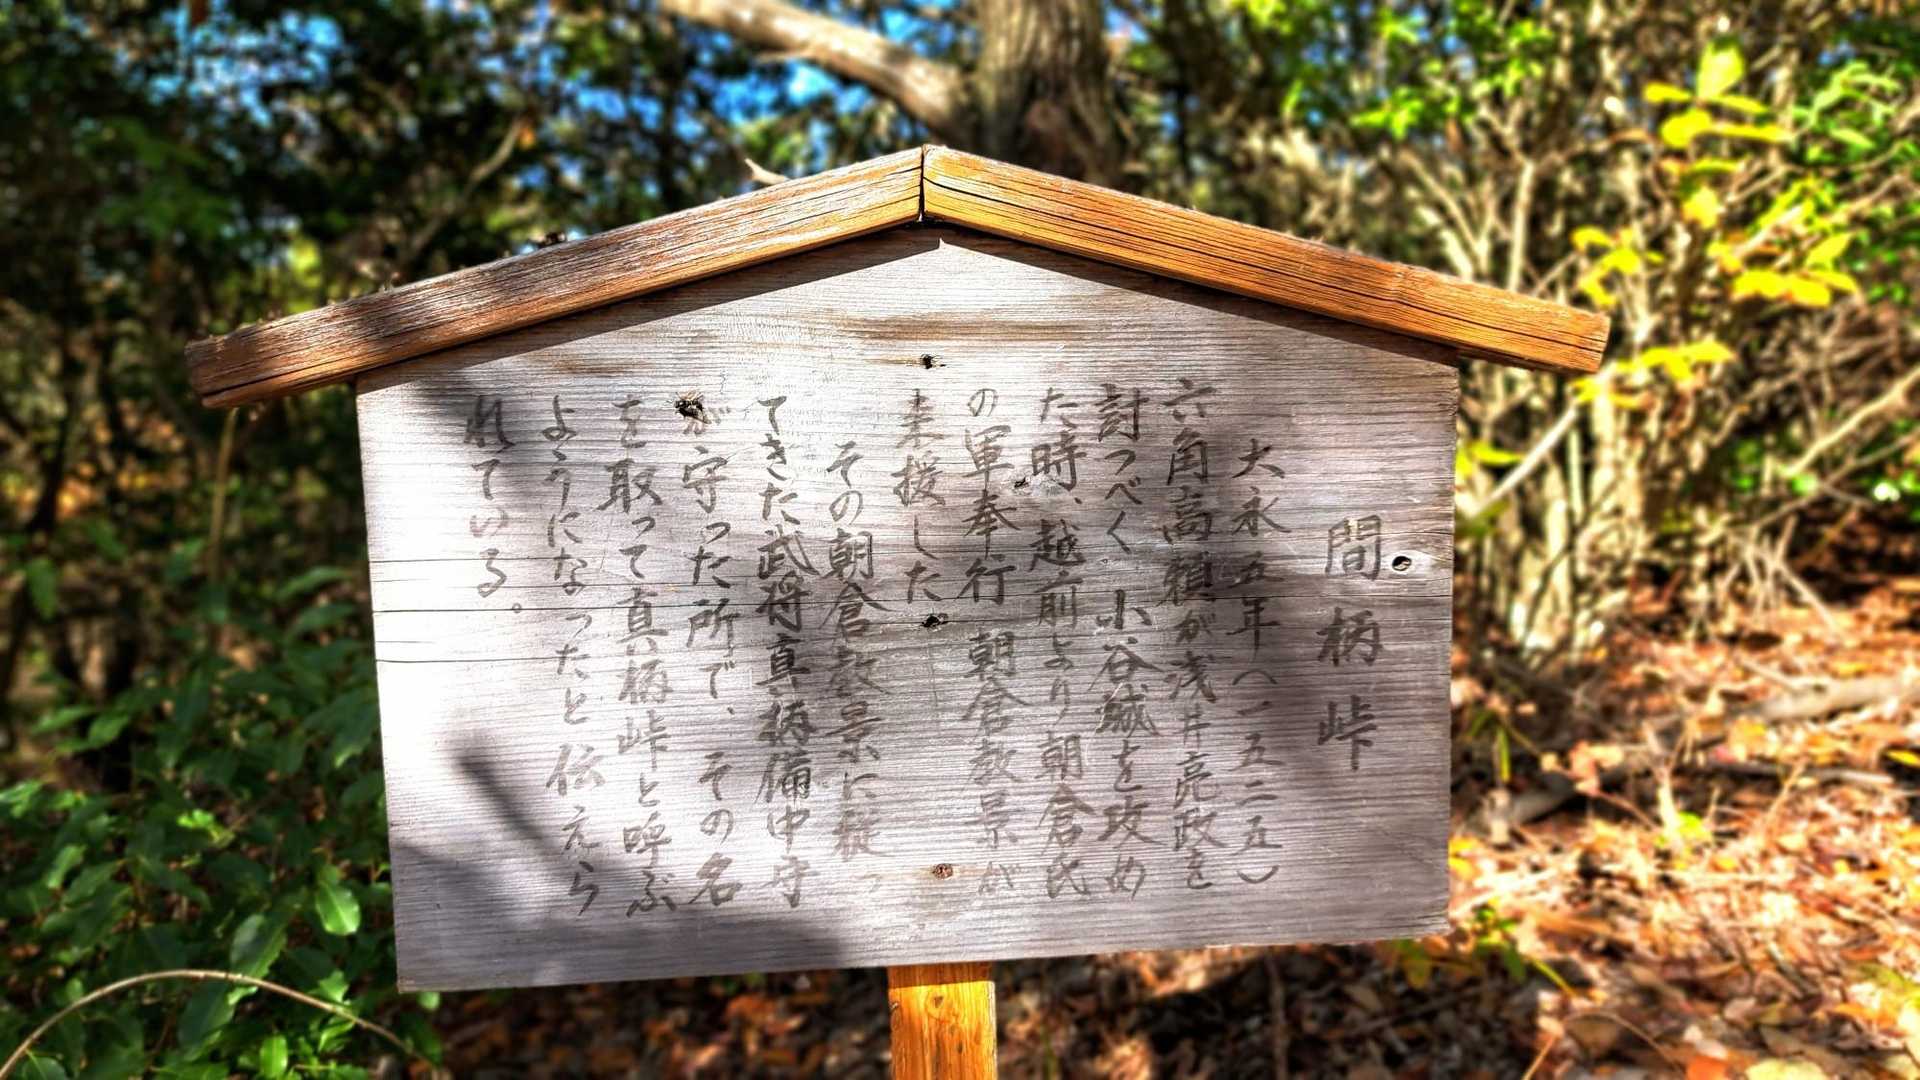 間柄峠
大永五年(一五二五)
六角高頼が浅井亮政を
討つべく小谷城を攻め
た時、越前より朝倉氏
の軍奉行朝倉教景が
来援した
その朝倉教景に従っ
てきた武将真柄備中守
が守った所で、その名
を取って真柄峠と呼ぶ
ようになったと伝えら
れている。